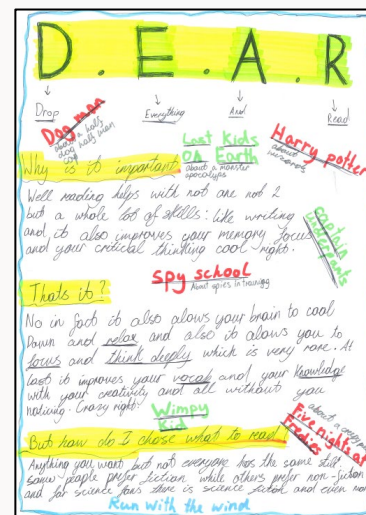 D.E.A.R
Drop Everything And Read
Dog man
about a half
dog half man
cop
Last Kids
On Earth
about a monster
apocalyps
Harry potter
about
wizards
Why is it important
Well reading helps with not one not 2
but a whole lot of skills: like writing
and, it also improves your memory focus
and your critical thinking cool right.
captain
underpants
Spy school
About spies in training
Thats it?
No in fact it also alows your brain to cool
Down and relax and also it alows you to
focus and think deeply which is very rare. At
last it improves your vocab and your knowledge
with your creativity and all without you
noticing. Crazy right.
Wimpy
Kid
about a creepy
Five nights at
Fredies
But how do I chose what to read
Anything you want but not everyone has the same
some people prefer fiction while others prefer non-fiction
and for science fans there is science fiction and even
Run with the wind